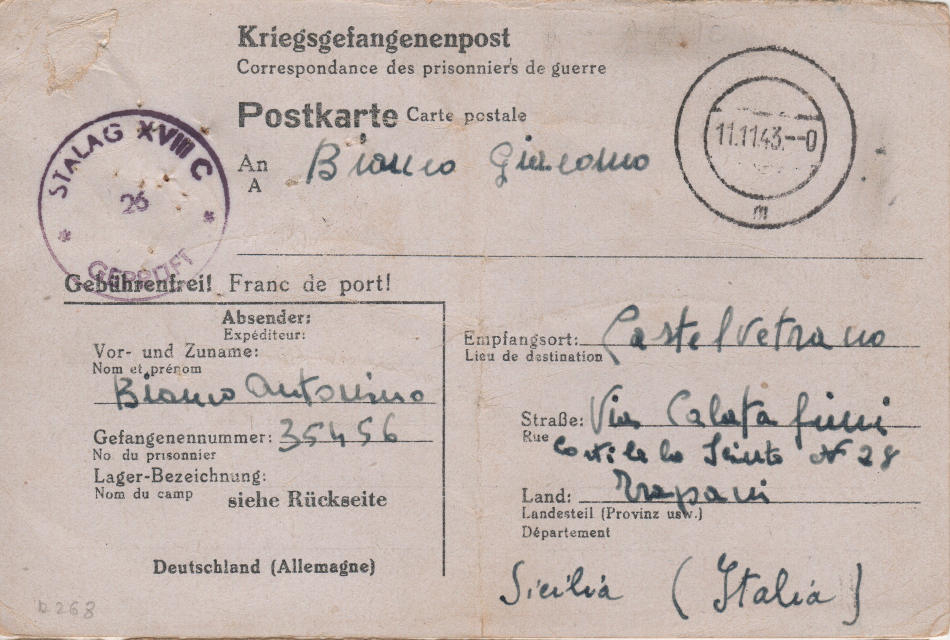 Kriegsgefangenenpost
Correspondance des prisonniers de guerre
Postkarte Carte postale
STALAG XVIII C
26
GEPRÜFT
11.11.43.--0
m
An Bianco Giacomo
A
Gebührenfrei! Franc de port!
Absender:
Expéditeur:
Vor- und Zuname:
Nom et prénom
Bianco Antonino
Gefangenennummer: 35456
No du prisonnier
Lager-Bezeichnung:
Nom du camp
siehe Rückseite
Deutschland (Allemagne)
Empfangsort: Castelvetrano
Lieu de destination
Straße: Via Calatafimi
Rue
Cortile lo N 28
Land: Trapani
Landesteil (Provinz usw.)
Département
Sicilia (Italia)
268